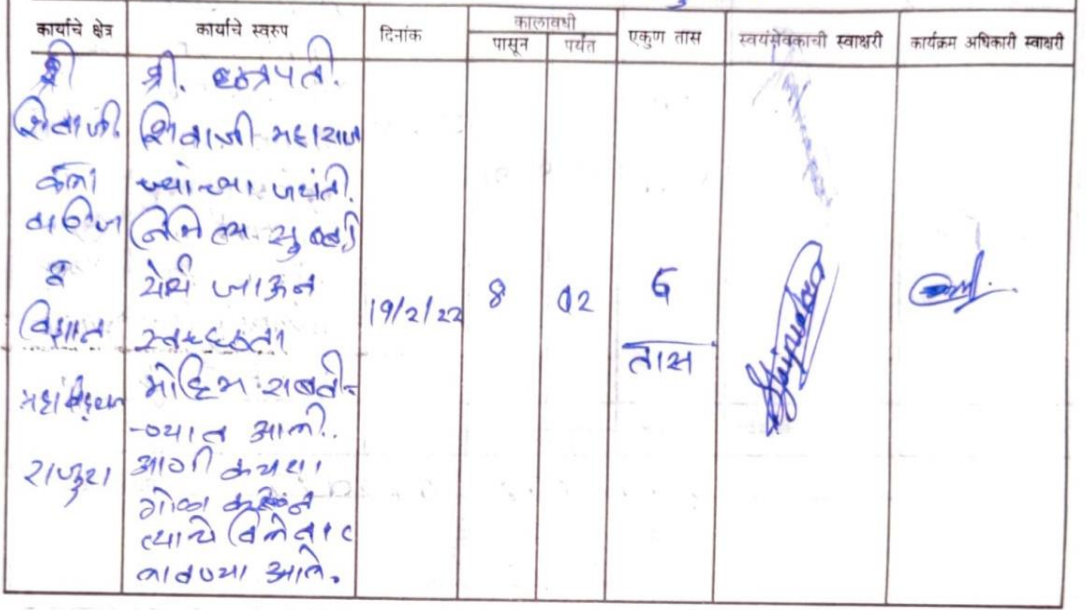 कार्याचे क्षेत्र कार्याचे स्वरुप दिनांक कालावधी एकुण तास स्वयंसेवकाची स्वाक्षरी कार्यक्रम अधिकारी स्वाक्षरी
पासून पर्यंत
श्री
शिवाजी
कला
वाणिज्य
व
विज्ञान
महाविद्यालय
राजुरा
श्री. छत्रपती.
शिवाजी महाराज
यांच्या जयंती.
निमित्य
येथे जाऊन
स्वच्छता
मोहिम राबवी-
-ण्यात आली.
आणी कचरा
गोळा करून
त्याचे विलेवाट
लावण्या आले.
19/2/22
8
02
6
तास